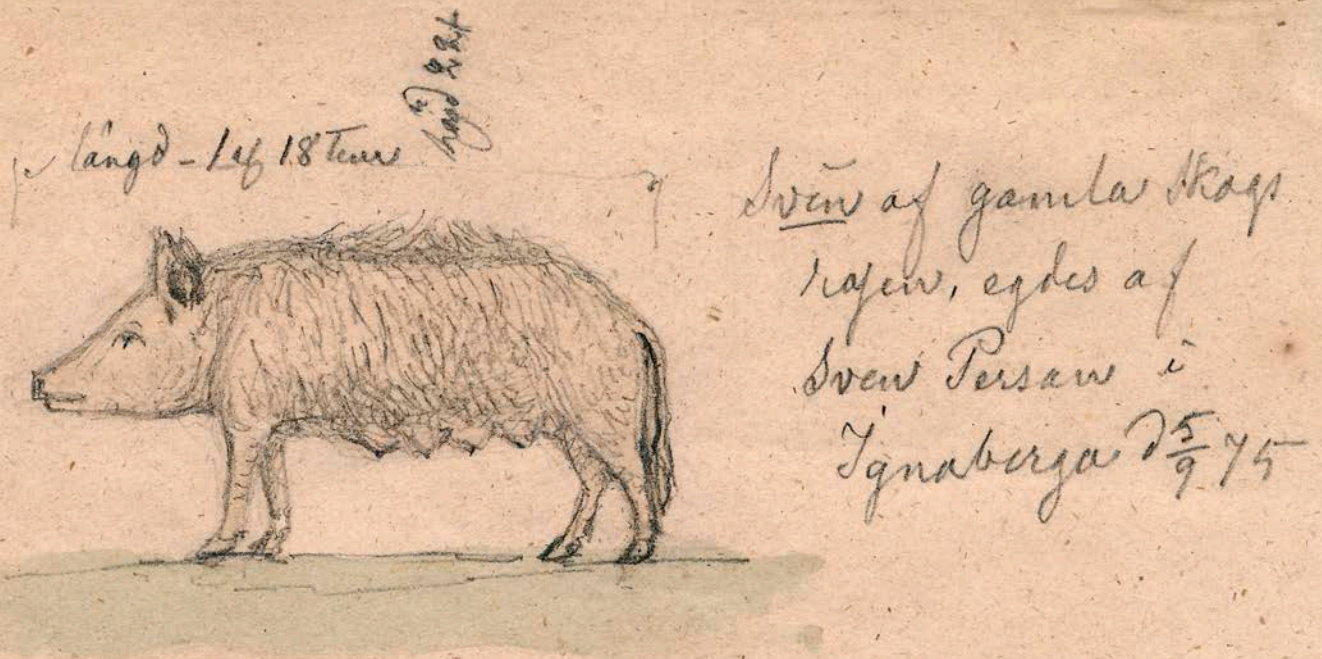 längd - 1 af 18 Tum
höjd 2 24
Svin af gamla Skogs
rasen, egdes af
Sven Persan i
Ignaberga d 5/9 75